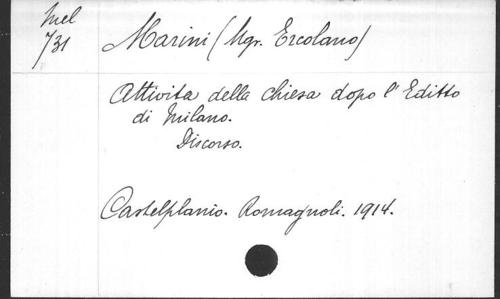 Mel
731
Marini (Mgr. Ercolano)
Attivita della chiesa dopo l'Editto
di Milano.
Discorso.
Castelplanio. Romagnoli. 1914.